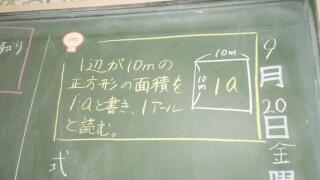 m
1辺が10mの
正方形の面積を
1aと書き、1アール
と読む。
10m
10m
1a
9月20日金曜
式
知り